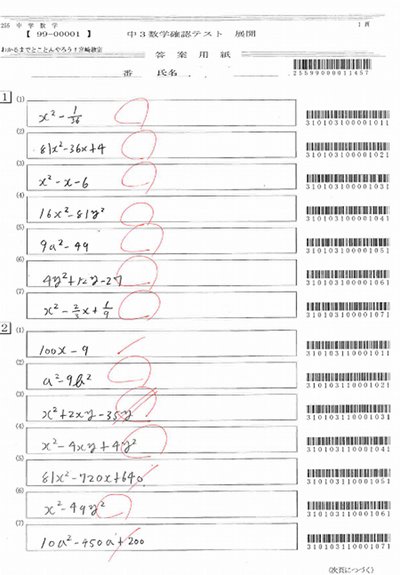 255 中学数学
1頁
【 99-00001 】 中3数学確認テスト 展開
わかるまでとことんやろう！宮崎教室
答案用紙
番 氏名
.255990000011457
1
(1) x² - 1/36
310103100001011
(2) 81x²-36x+4
310103100001021
(3) x² - x - 6
310103100001031
(4) 16x² - 81y²
310103100001041
(5) 9a² - 49
310103100001051
(6) 4y²+12y-27
310103100001061
(7) x² - 2/3x + 1/9
310103100001071
2
(1) 100x - 9
310103110001011
(2) a² - 9b²
310103110001021
(3) x²+2xy-35y
310103110001031
(4) x² - 4xy + 4y²
310103110001041
(5) 81x² - 720x + 640
310103110001051
(6) x² - 49y²
310103110001061
(7) 10a² - 450a + 200
310103110001071
(次頁につづく)